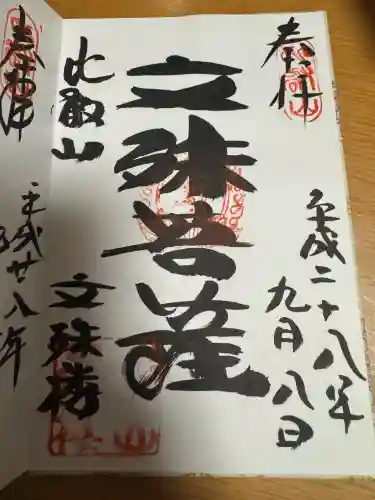 奉拝
平成二十八年
九月八日
文殊菩薩
比叡山
文殊楼
奉拝
平成廿八年